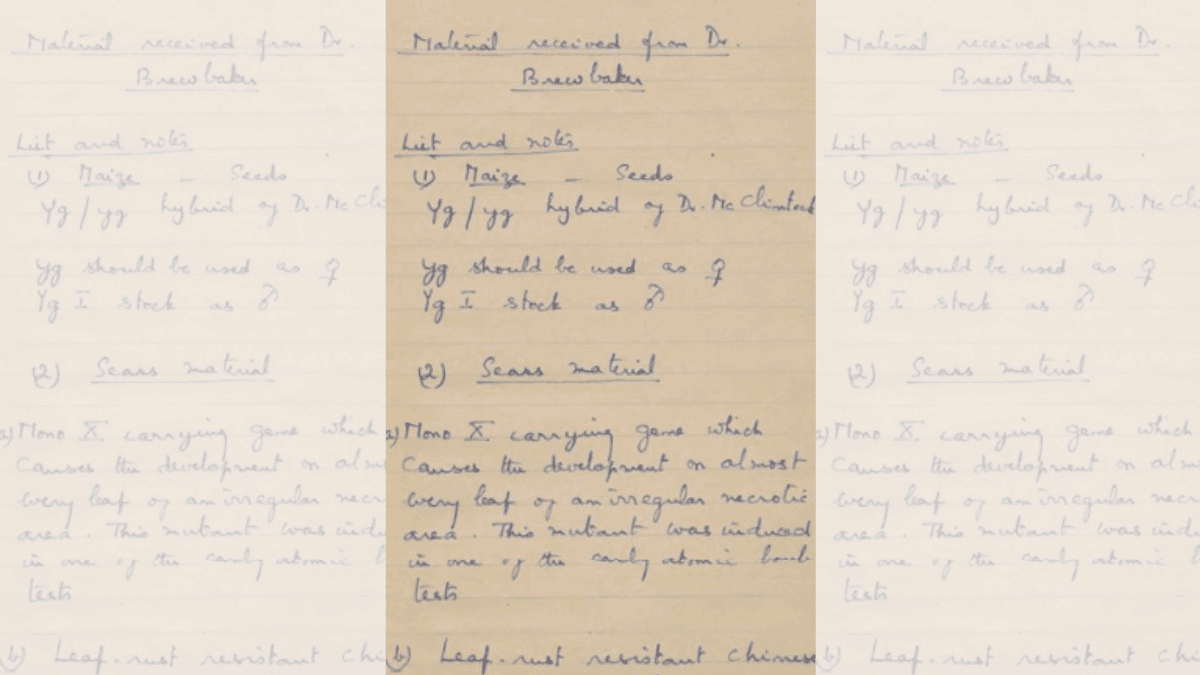 Material received from Dr.
Brewbaker
List and notes
(1) Maize — Seeds
Yg/yg hybrid of Dr. McClintock
yg should be used as ♀
Yg I stock as ♂
(2) Sears material
a) Mono X. carrying gene which
causes the development on almost
every leaf of an irregular necrotic
area. This mutant was induced
in one of the early atomic bomb
tests
(b) Leaf-rust resistant Chinese